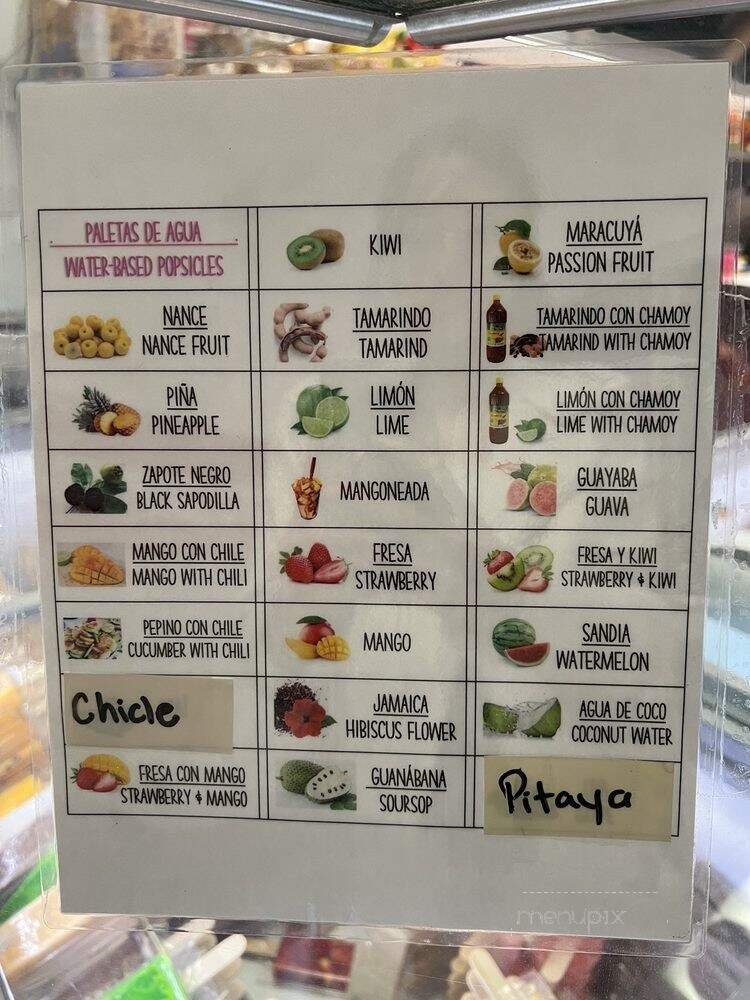 PALETAS DE AGUA
WATER-BASED POPSICLES
KIWI
MARACUYÁ
PASSION FRUIT
NANCE
NANCE FRUIT
TAMARINDO
TAMARIND
TAMARINDO CON CHAMOY
TAMARIND WITH CHAMOY
PIÑA
PINEAPPLE
LIMÓN
LIME
LIMÓN CON CHAMOY
LIME WITH CHAMOY
ZAPOTE NEGRO
BLACK SAPODILLA
MANGONEADA
GUAYABA
GUAVA
MANGO CON CHILE
MANGO WITH CHILI
FRESA
STRAWBERRY
FRESA Y KIWI
STRAWBERRY & KIWI
PEPINO CON CHILE
CUCUMBER WITH CHILI
MANGO
SANDIA
WATERMELON
Chicle
JAMAICA
HIBISCUS FLOWER
AGUA DE COCO
COCONUT WATER
FRESA CON MANGO
STRAWBERRY & MANGO
GUANÁBANA
SOURSOP
Pitaya
menupix